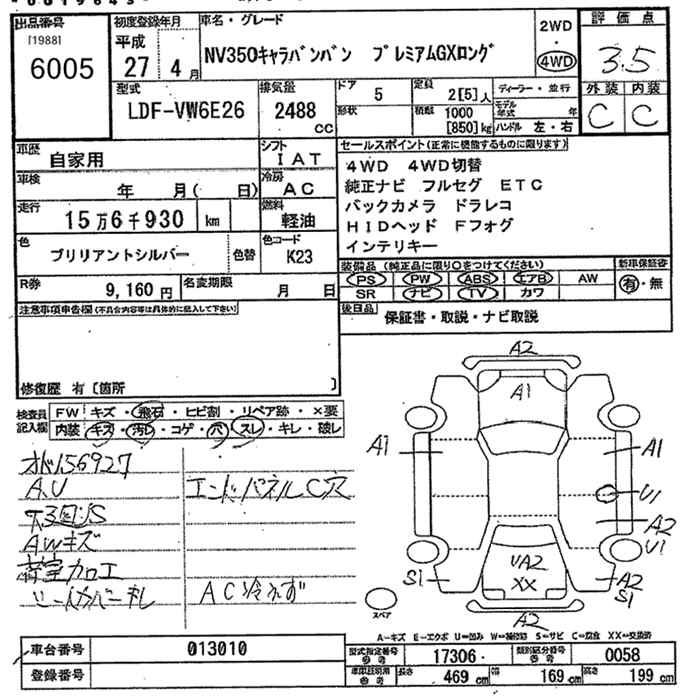 出品番号
[1988]
6005
初度登録年月
平成
27年 4月
車名・グレード
NV350キャラバンバン プレミアムGXロング
2WD
・
4WD
評価点
3.5
外装 内装
C C
型式
LDF-VW6E26
排気量
2488
cc
ドア
5
形状
定員
2[5]人
積載
1000
[850]kg
ディーラー・並行
モデル年式 年
ハンドル 左・右
車歴
自家用
シフト
IAT
車検
年 月( 日)
冷房
AC
走行
15万6千930 km
燃料
軽油
色
ブリリアントシルバー
色替
色コード
K23
R券
9,160円
名変期限
月 日
セールスポイント(正常に機能するものに限ります)
4WD 4WD切替
純正ナビ フルセグ ETC
バックカメラ ドラレコ
HIDヘッド Fフォグ
インテリキー
装備品(純正品に限り○をつけてください)
PS PW ABS エアB AW
SR ナビ TV カワ
新車保証書
有・無
後日品
保証書・取説・ナビ取説
注意事項申告欄(不具合内容等は具体的に記入して下さい)
修復歴 有〔箇所 〕
検査員記入欄
FW キズ・飛石・ヒビ割・リペア跡・×要
内装 キズ・汚レ・コゲ・穴・スレ・キレ・破レ
156927
AU
エンドパネルC穴
下回りS
AWキズ
荷室カロエ
AC冷えず
A2
A1
A1
A1
U1
A2
U1
UA2
XX
S1
A2
S1
スペア
A2
A-キズ E-エクボ U-凹み W-補修跡 S-サビ C-腐食 XX-交換済
車台番号
013010
登録番号
型式指定番号
参考
17306
類別区分番号
参考
0058
車車証明用
参考
長さ 469cm 幅 169cm 高さ 199cm